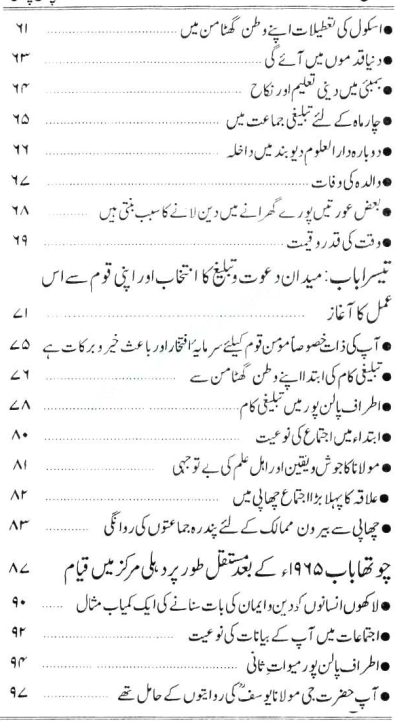 ● اسکول کی تعطیلات اپنے وطن گھٹامن میں ........ ۶۱
● دنیا قدموں میں آئے گی ........ ۶۳
● بمبئی میں دینی تعلیم اور نکاح ........ ۶۴
● چار ماہ کے لئے تبلیغی جماعت میں ........ ۶۵
● دوبارہ دارالعلوم دیوبند میں داخلہ ........ ۶۶
● والدہ کی وفات ........ ۶۷
● بعض عورتیں پورے گھرانے میں دین لانے کا سبب بنتی ہیں ........ ۶۸
● وقت کی قدر و قیمت ........ ۶۹
تیسرا باب: میدان دعوت و تبلیغ کا انتخاب اور اپنی قوم سے اس
عمل کا آغاز ........ ۷۱
● آپ کی ذات خصوصاً مؤمن قوم کیلئے سرمایہ افتخار اور باعث خیر و برکات ہے ۷۵
● تبلیغی کام کی ابتدا اپنے وطن گھٹامن سے ........ ۷۶
● اطراف پالن پور میں تبلیغی کام ........ ۷۸
● ابتداء میں اجتماع کی نوعیت ........ ۸۰
● مولانا کا جوش و یقین اور اہل علم کی بے توجہی ........ ۸۱
● علاقہ کا پہلا بڑا اجتماع چھاپی میں ........ ۸۲
● چھاپی سے بیرون ممالک کے لئے پندرہ جماعتوں کی روانگی ........ ۸۳
چوتھا باب ۱۹۶۵ء کے بعد مستقل طور پر دہلی مرکز میں قیام ۸۷
● لاکھوں انسانوں کو دین و ایمان کی بات سنانے کی ایک کمیاب مثال ...... ۹۰
● اجتماعات میں آپ کے بیانات کی نوعیت ........ ۹۲
● اطراف پالن پور میوات ثانی ........ ۹۴
● آپ حضرت جی مولانا یوسفؒ کی روایتوں کے حامل تھے ........ ۹۷